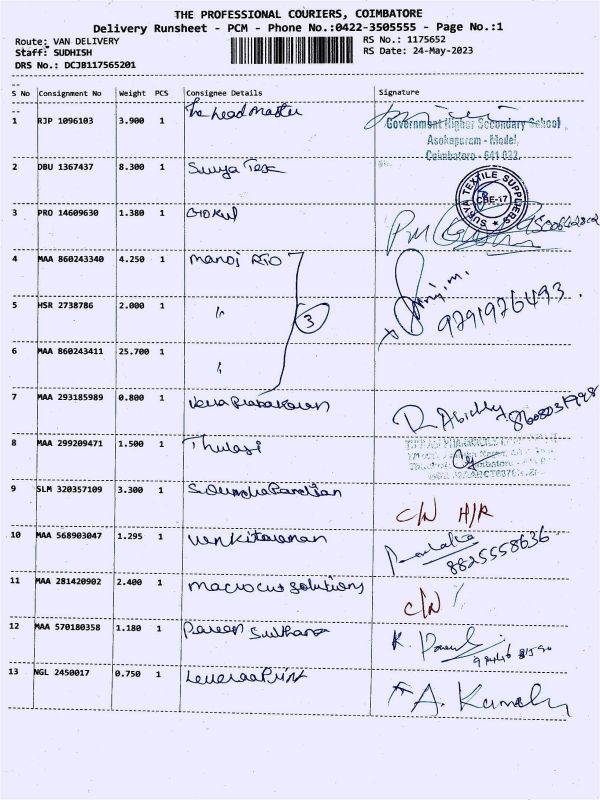 THE PROFESSIONAL COURIERS, COIMBATORE
Delivery Runsheet - PCM - Phone No.:0422-3505555 - Page No.:1
Route: VAN DELIVERY RS No.: 1175652
Staff: SUDHISH RS Date: 24-May-2023
DRS No.: DCJB117565201
S No Consignment No Weight PCS Consignee Details Signature
1 RJP 1096103 3.900 1 The Head Master
Government Higher Secondary School
Asokapuram - Model,
Coimbatore - 641 022.
2 DBU 1367437 8.300 1 Surya Tex
SURYA TEXTILE SUPPLIERS
CBE-17
3 PRO 14609630 1.380 1 Gokul
4 MAA 860243340 4.250 1 Manoj RTO
5 HSR 2738786 2.000 1 " 3 9791976493.
6 MAA 860243411 25.700 1 "
7 MAA 293185989 0.800 1
8 MAA 299209471 1.500 1 Thulasi
9 SLM 320357109 3.300 1 C/N H/R
10 MAA 568903047 1.295 1 Venkitaraman
8825558636
11 MAA 281420902 2.400 1 Macrocut Solutions C/N
12 MAA 570180358 1.180 1 K.
13 NGL 2450017 0.750 1 A.